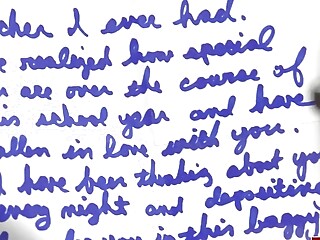 cher I ever had.
e realized how special
are over the course of
is school year and have
allen in love with you.
I have been thinking about you
every night and depositing
for you in this baggy